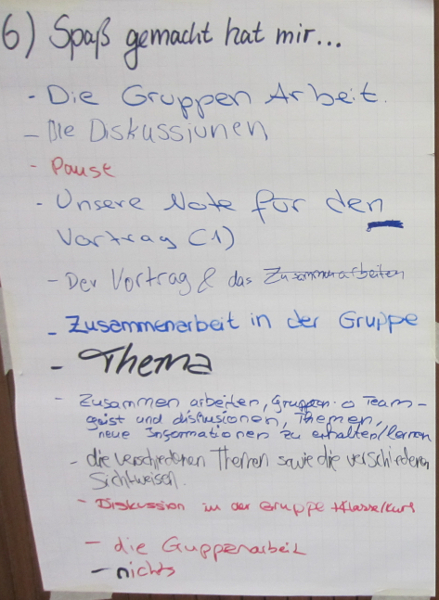 6) Spaß gemacht hat mir...
- Die Gruppen Arbeit.
- Die Diskussionen
- Pause
- Unsere Note für den
Vortrag (1)
- Der Vortrag & das Zusammenarbeiten
- Zusammenarbeit in der Gruppe
- Thema
- Zusammen arbeiten, Gruppen- o Team-
geist und diskusionen, Themen,
neue Informationen zu erhalten/lernen
- die verschiedenen Themen sowie die verschiedenen
Sichtweisen.
- Diskussion in der Gruppe +Klasse/Kurs
- die Gruppenarbeit
- nichts